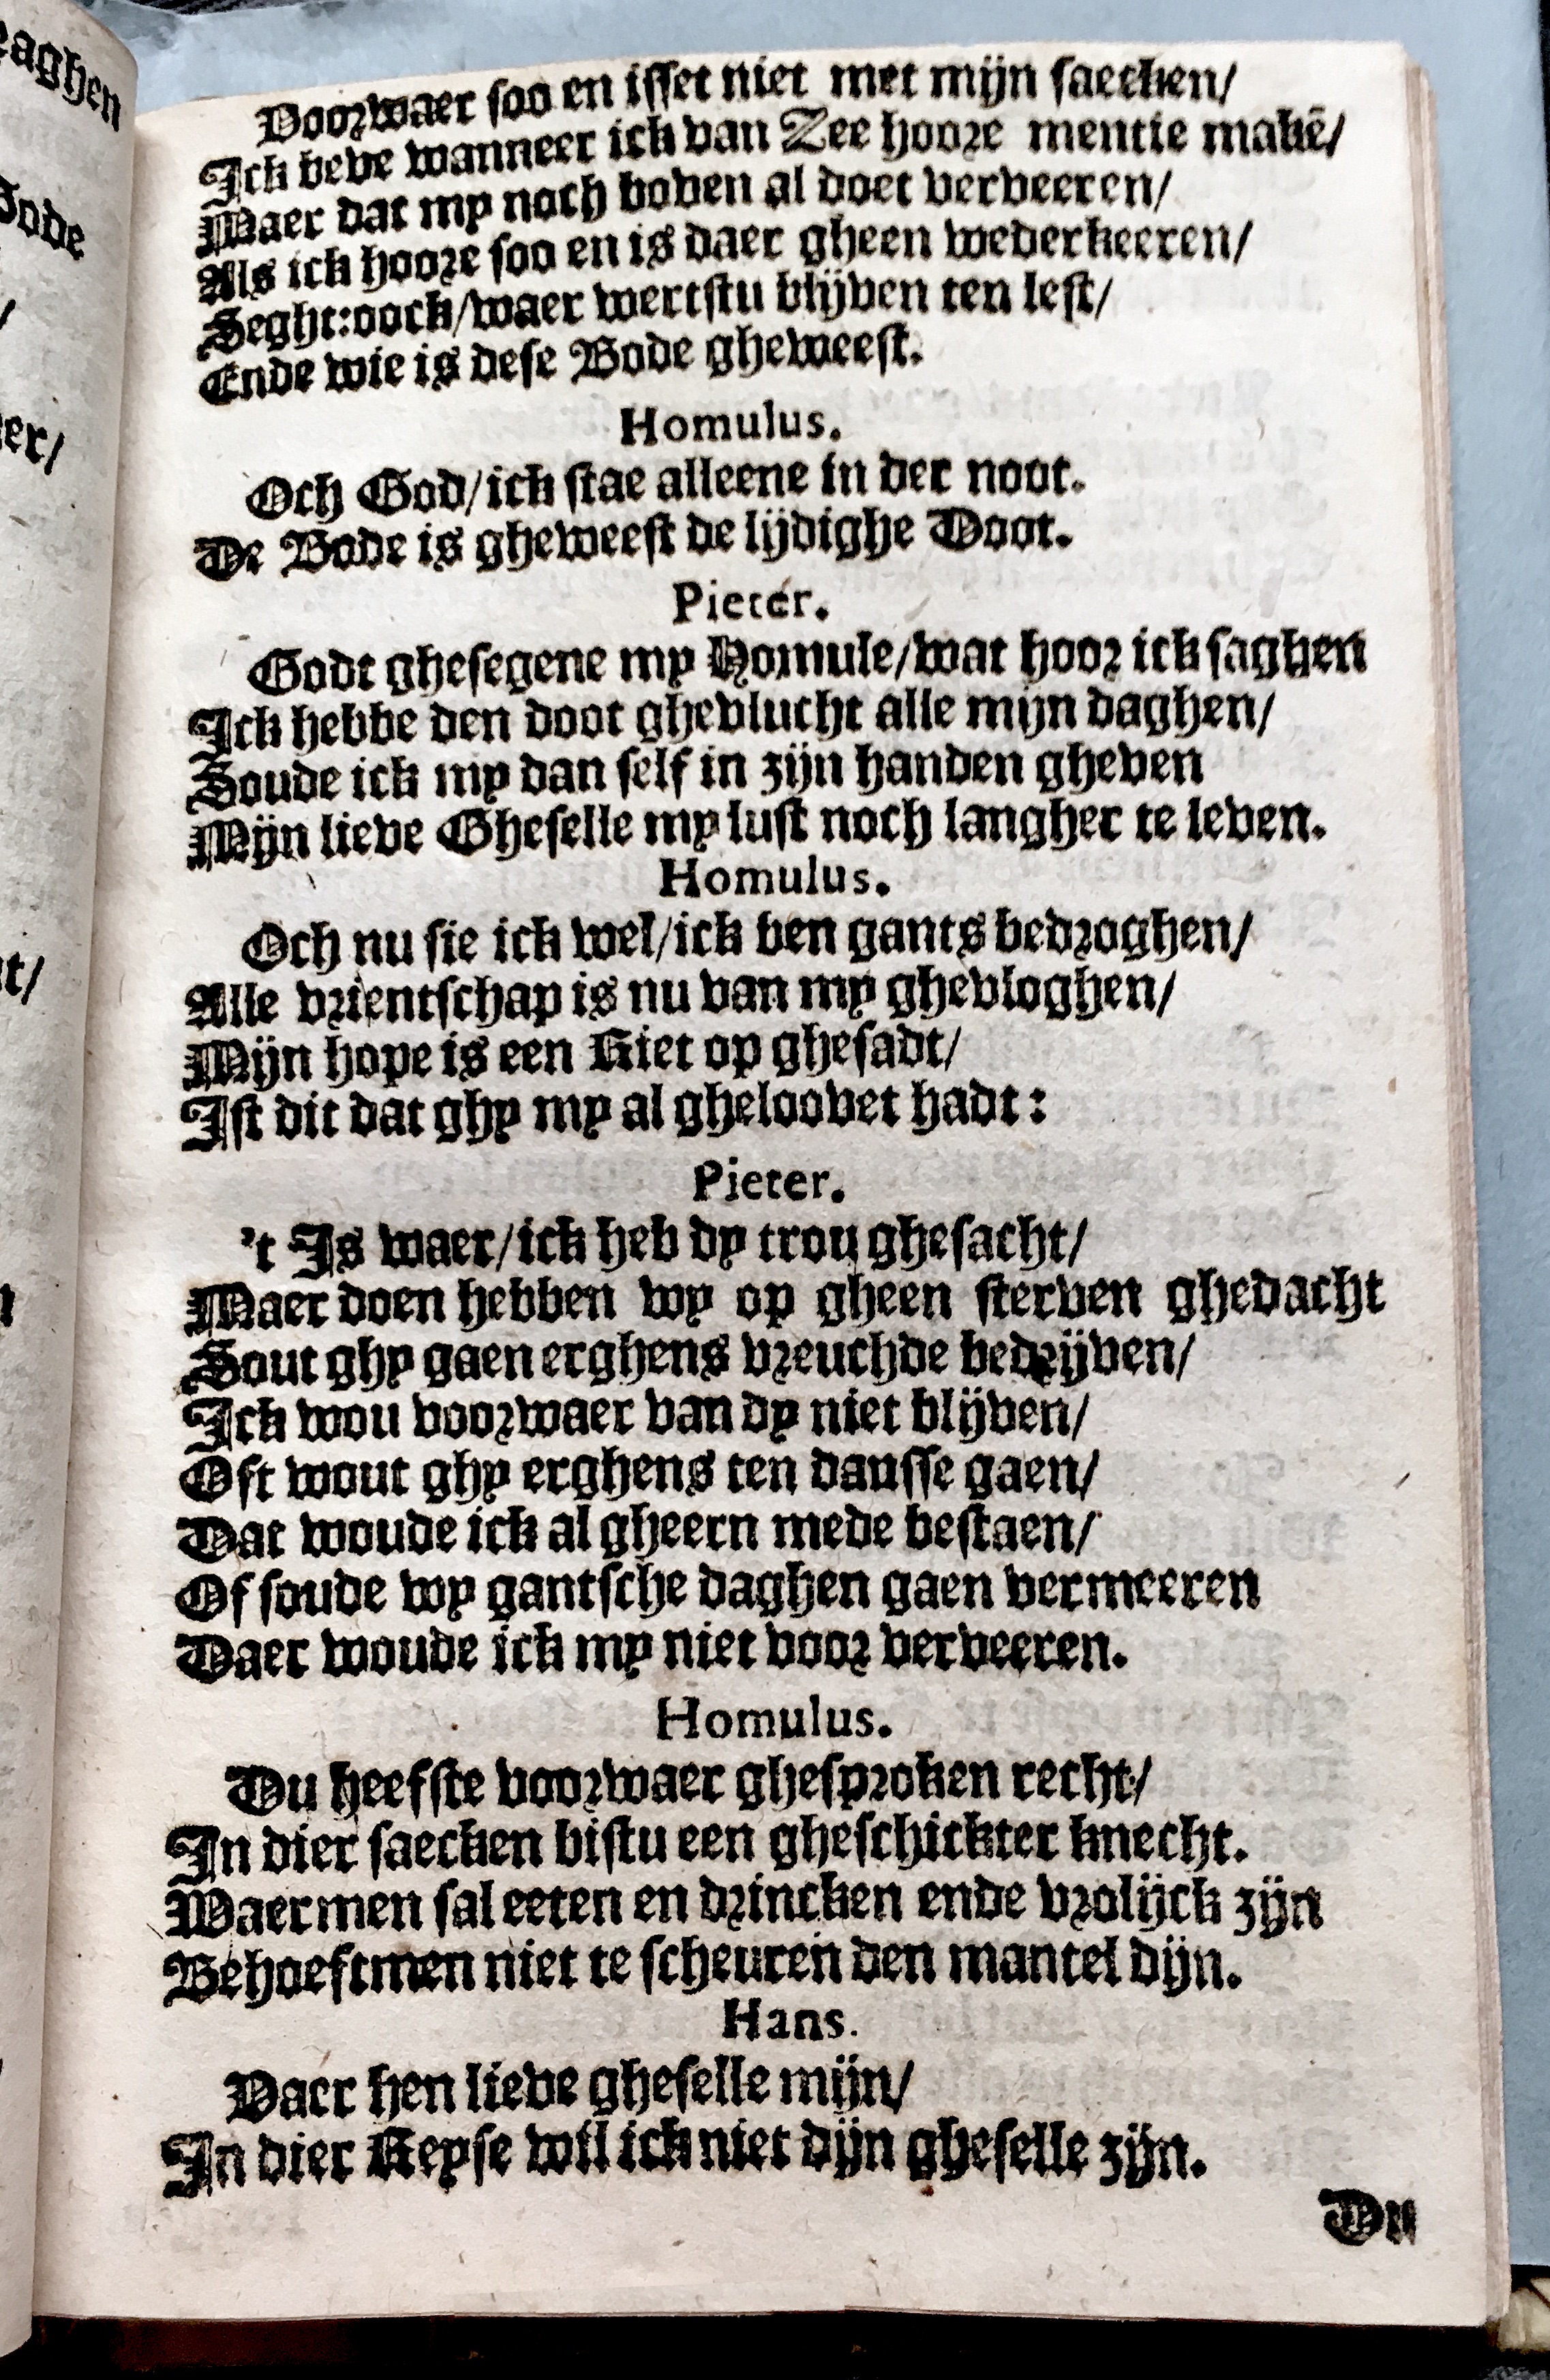 Voorwaer soo en isset niet met mijn saecken/
Ick beve wanneer ick van Zee hoore mentie makē/
Maer dat my noch boven al doet verveeren/
Als ick hoore soo en is daer gheen wederkeeren/
Seght:oock/waer wertstu blijven ten lest/
Ende wie is dese Bode gheweest.
Homulus.
Och God/ick stae alleene in der noot.
De Bode is gheweest de lijdighe Doot.
Pieter.
Godt ghesegene my Homule/wat hoor ick saghen
Ick hebbe den doot ghevlucht alle mijn daghen/
Soude ick my dan self in zijn handen gheven
Mijn lieve Gheselle my lust noch langher te leven.
Homulus.
Och nu sie ick wel/ick ben gants bedroghen/
Alle vrientschap is nu van my ghevloghen/
Mijn hope is een Riet op ghesadt/
Ist dit dat ghy my al gheloovet hadt:
Pieter.
't Is waer/ick heb dy trou ghesacht/
Maer doen hebben wy op gheen sterven ghedacht
Sout ghy gaen erghens vreuchde bedrijven/
Ick wou voorwaer van dy niet blijven/
Oft wout ghy erghens ten dansse gaen/
Dat woude ick al gheern mede bestaen/
Of soude wy gantsche daghen gaen vermeeren
Daer woude ick my niet voor verveeren.
Homulus.
Du heefste voorwaer ghesproken recht/
In dier saecken bistu een gheschickter knecht.
Waermen sal eeten en drincken ende vrolijck zijn
Behoeftmen niet te scheuren den mantel dijn.
Hans.
Vaer hen lieve gheselle mijn/
In dier Reyse wil ick niet dijn gheselle zijn.
Du